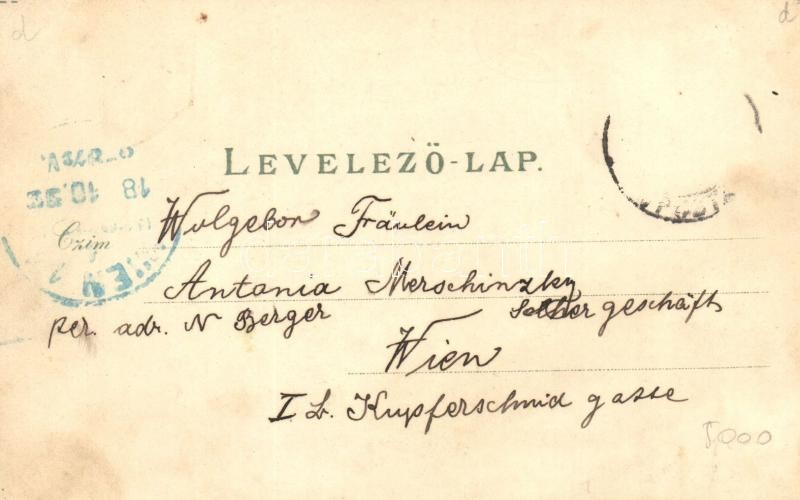 d d
LEVELEZŐ-LAP.
Czim
Wolgebor Fräulein
Antonia Merschinzky
per. adr. N Berger geschäft
Wien
I b. Kupferschmid gasse
5000
18 10.
WIEN 1